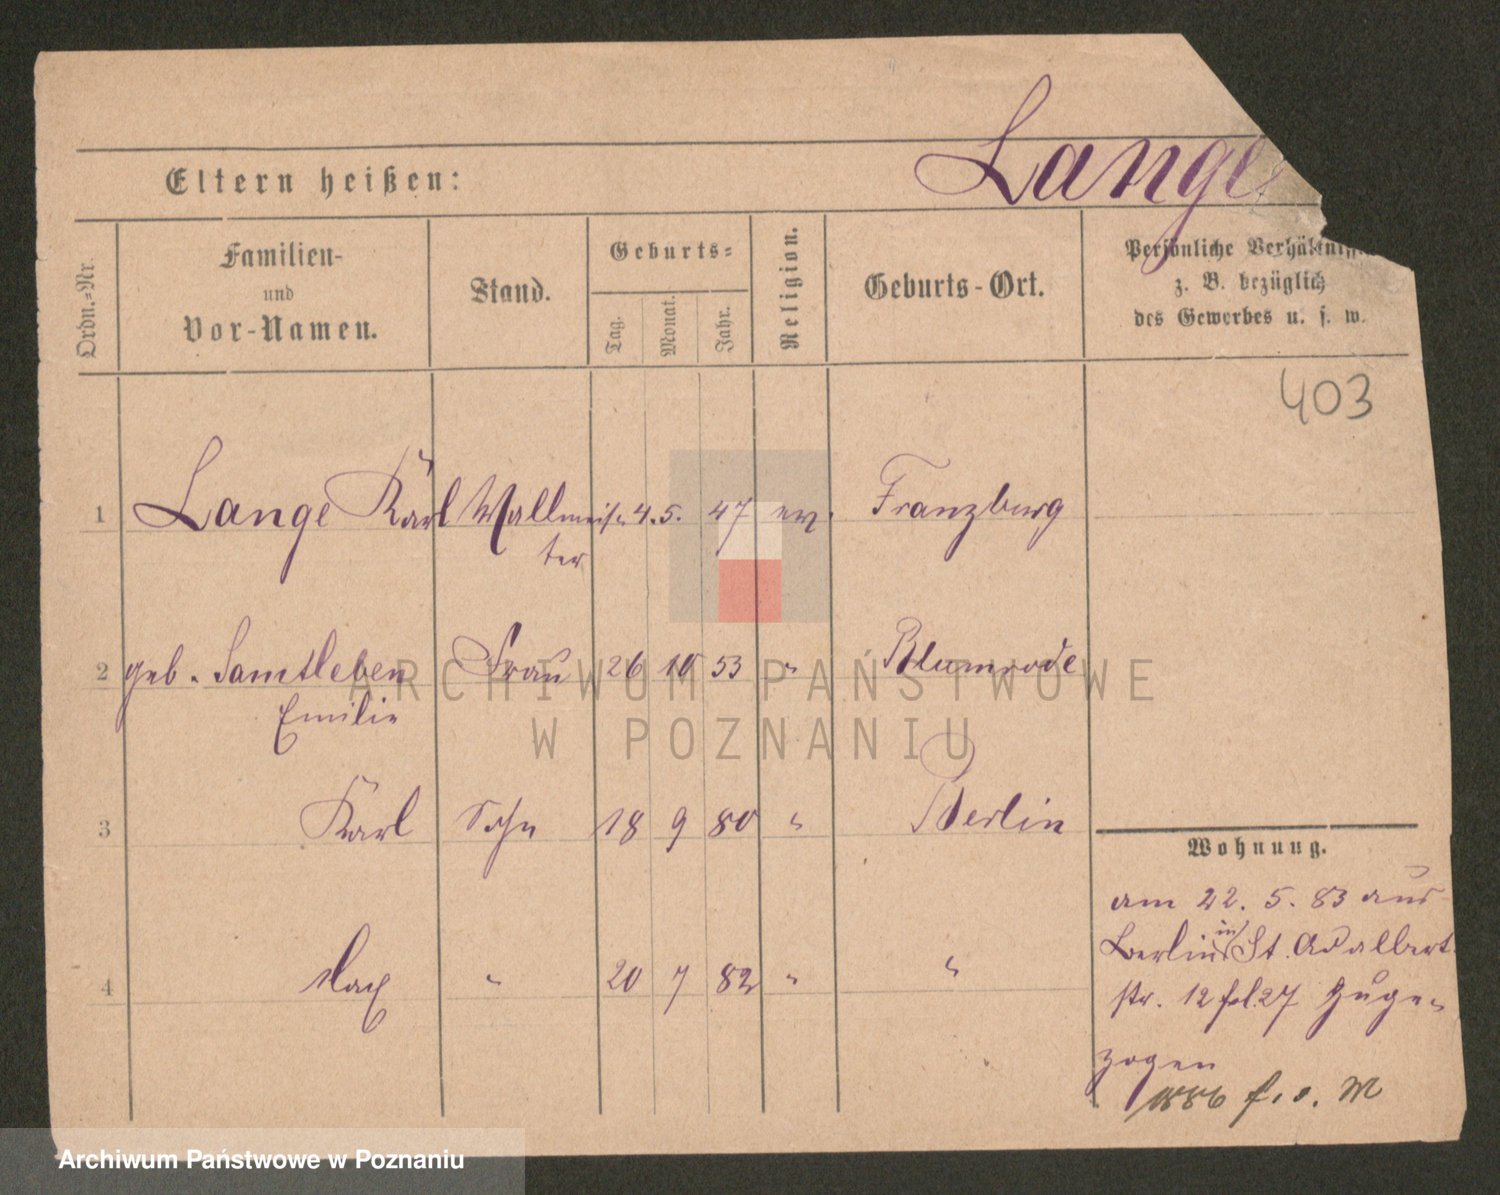 Lange
Eltern heißen:
Ordn.-Nr.
Familien-
und
Vor-Namen.
Stand.
Geburts-
Tag.
Monat.
Jahr.
Religion.
Geburts-Ort.
Persönliche Verhältniss
z. B. bezüglich
des Gewerbes u. s. w.
403
1 Lange Karl Wallmeis- 4. 5. 47 ev. Franzburg
ter
2 geb. Samtleben Frau 26 10 53 " Blumrode
Emilie
3 Karl Sohn 18 9 80 " Berlin
4 Max " 20 7 82 " "
Wohnung.
am 22. 5. 83 aus
Berlin in St. Adalbert
str. 12 fol. 27 zuge-
zogen
1886 f. o. M
ARCHIWUM PAŃSTWOWE
W POZNANIU
Archiwum Państwowe w Poznaniu